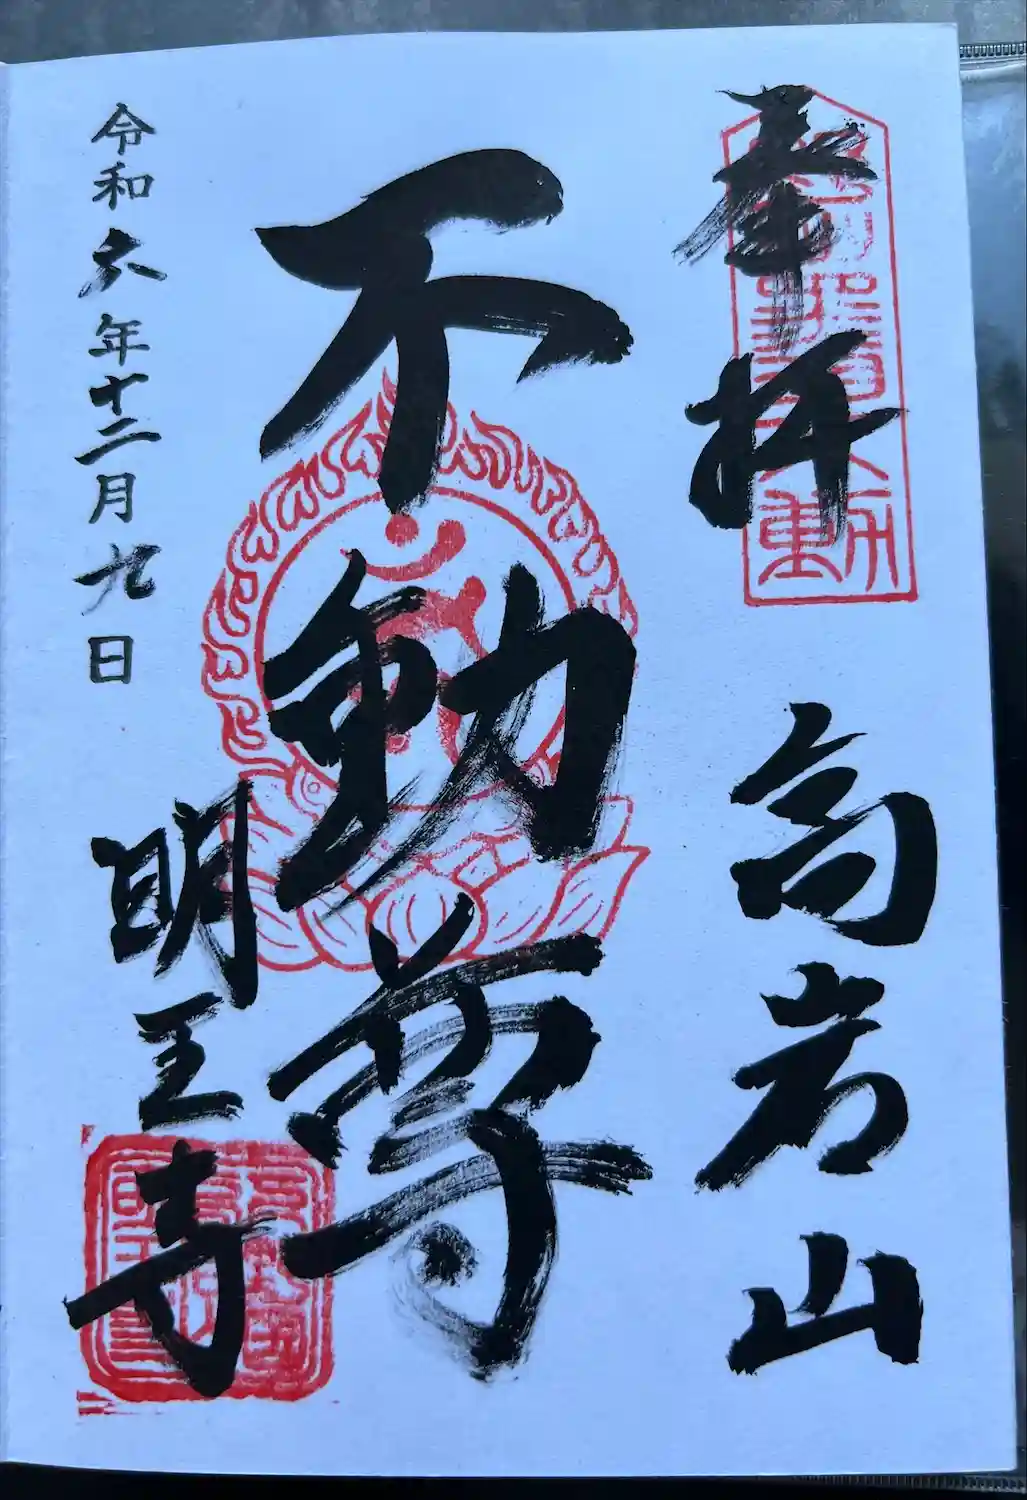 奉拝
高岩山
不動尊
令和六年十二月九日
明王寺